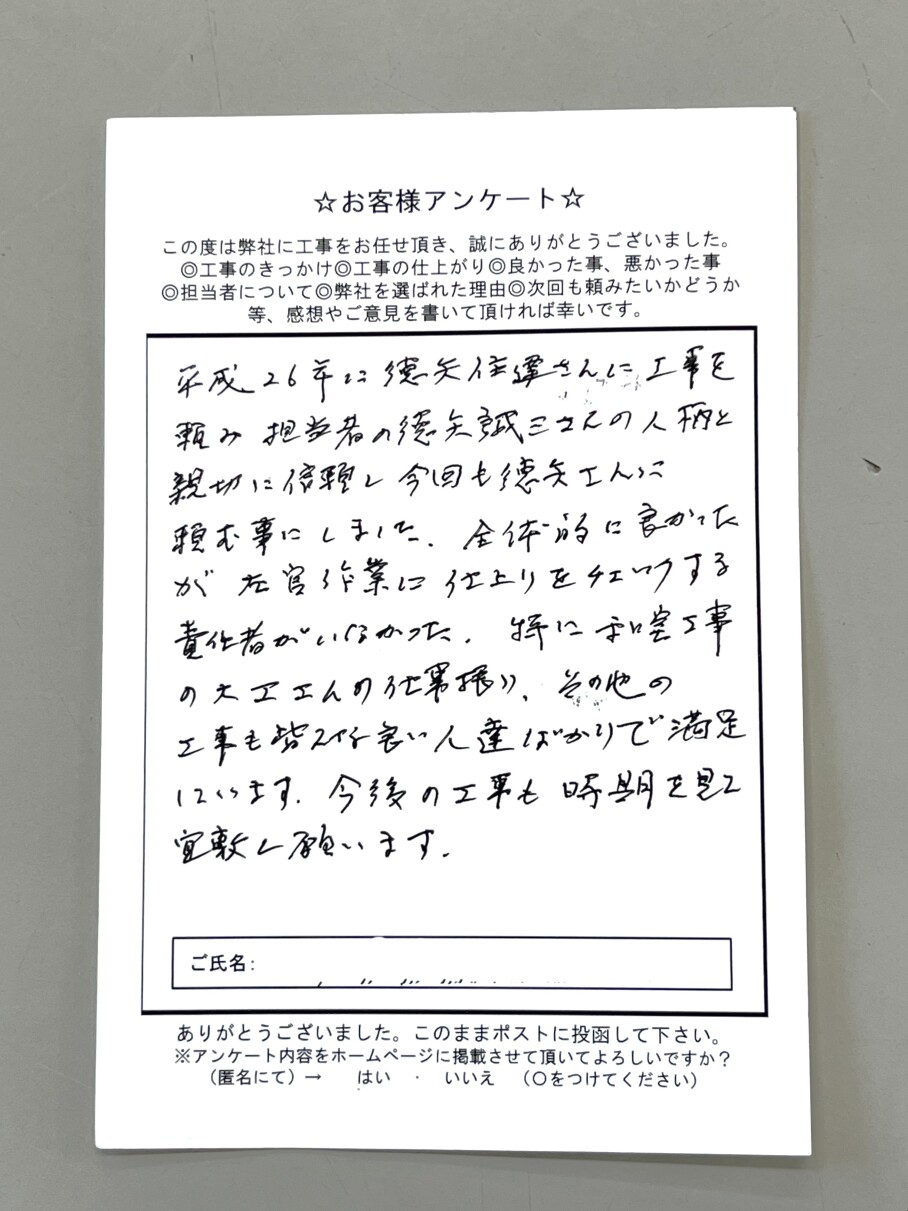 ☆お客様アンケート☆
この度は弊社に工事をお任せ頂き、誠にありがとうございました。
◎工事のきっかけ◎工事の仕上がり◎良かった事、悪かった事
◎担当者について◎弊社を選ばれた理由◎次回も頼みたいかどうか
等、感想やご意見を書いて頂ければ幸いです。
平成26年に德矢住建さんに工事を
頼み担当者の德矢誠三さんの人柄と
親切に信頼し今回も德矢さんに
頼む事にしました。全体的に良かった
が左官作業に仕上りをチェックする
責任者がいなかった。特に和室工事
の大工さんの仕事振り、その他の
工事も皆さん良い人達ばかりで満足
しています。今後の工事も時期を見て
宜敷く願います。
ご氏名:
ありがとうございました。このままポストに投函して下さい。
※アンケート内容をホームページに掲載させて頂いてよろしいですか?
(匿名にて)→ はい ・ いいえ (○をつけてください)